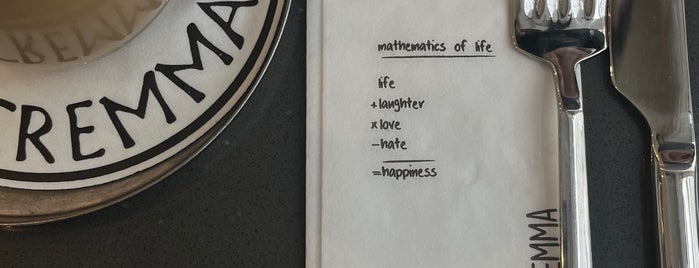 CREMMA
CREMMA
mathematics of life
life
+ laughter
x love
- hate
= happiness
EMMA